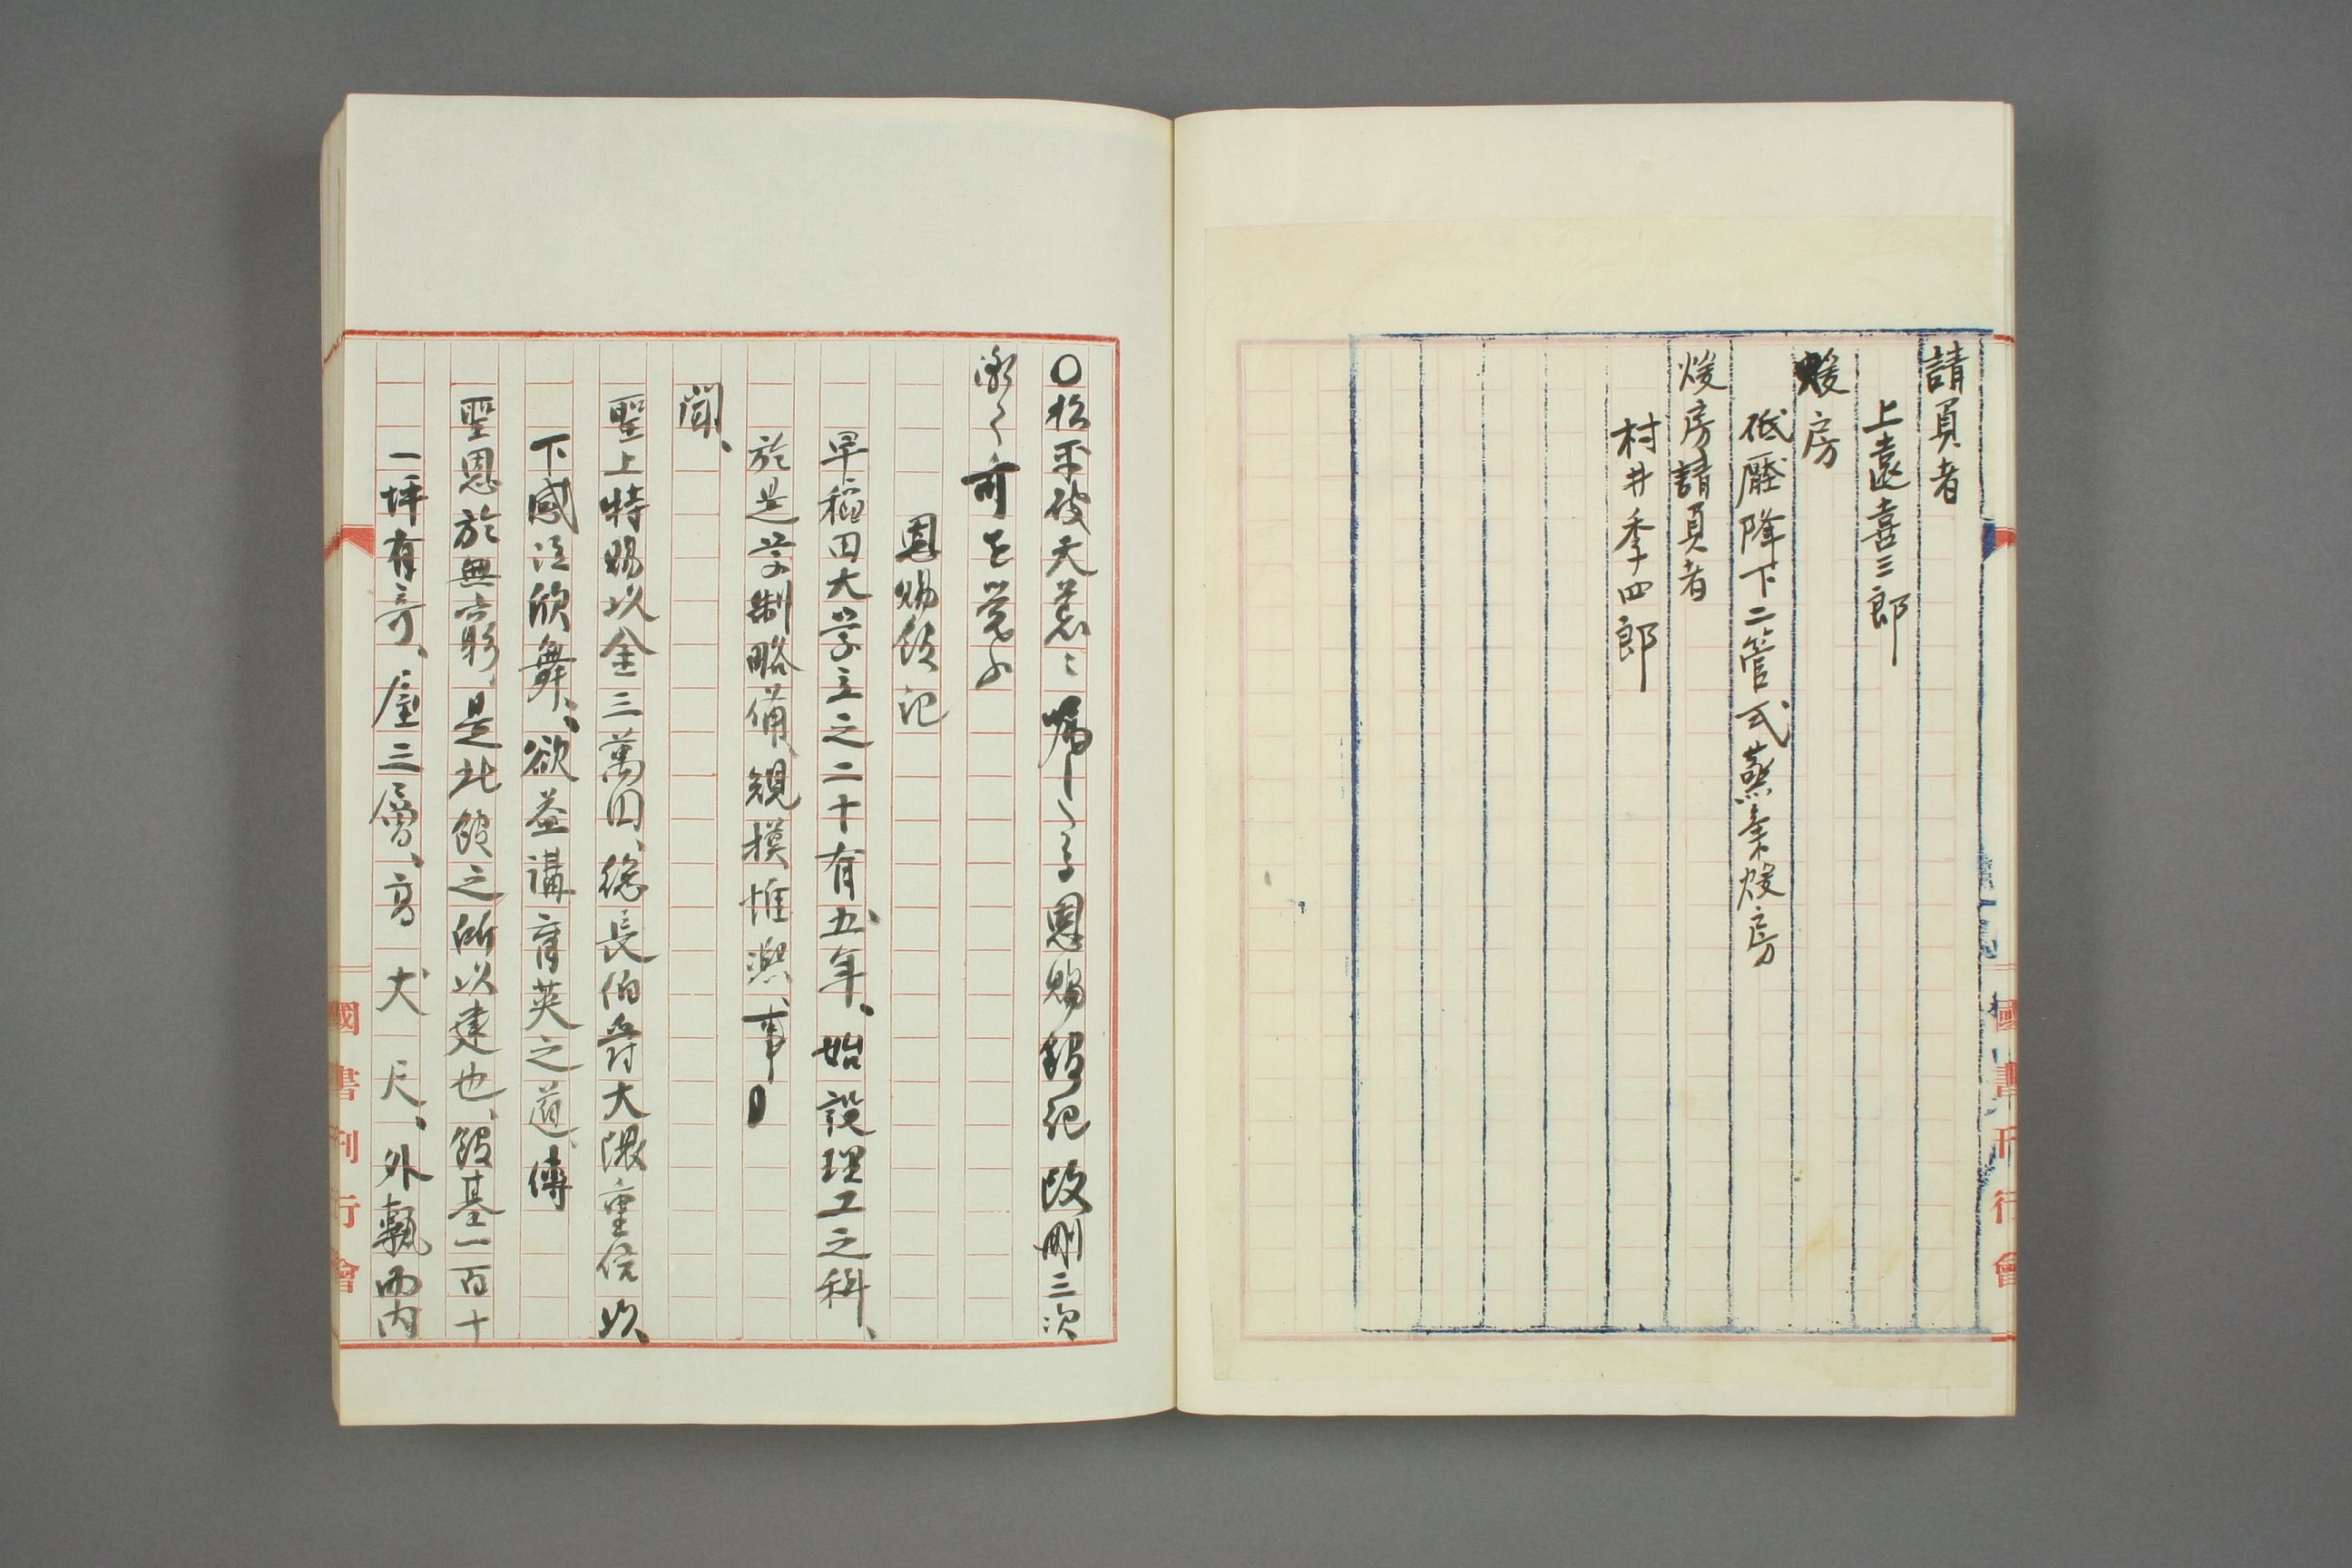 請負者
上遠喜三郎
煖房
低壓降下二管式蒸氣煖房
煖房請負者
村井季四郎
國書刊行會
〇松平破天荒ニ嘱したる恩賜館記改刪三次
漸く可を覚ふ
恩賜館記
早稲田大学立之二十有五年、始設理工之科、
於是学制略備、規模惟熙、事
聞、
聖上特賜以金三萬円、総長伯爵大隈重信以
下感泣欣舞、欲益講育英之道、傳
聖恩於無窮、是此館之所以建也、館基一百十
一坪有奇、屋三層、高 丈 尺、外甎而内
國書刊行會